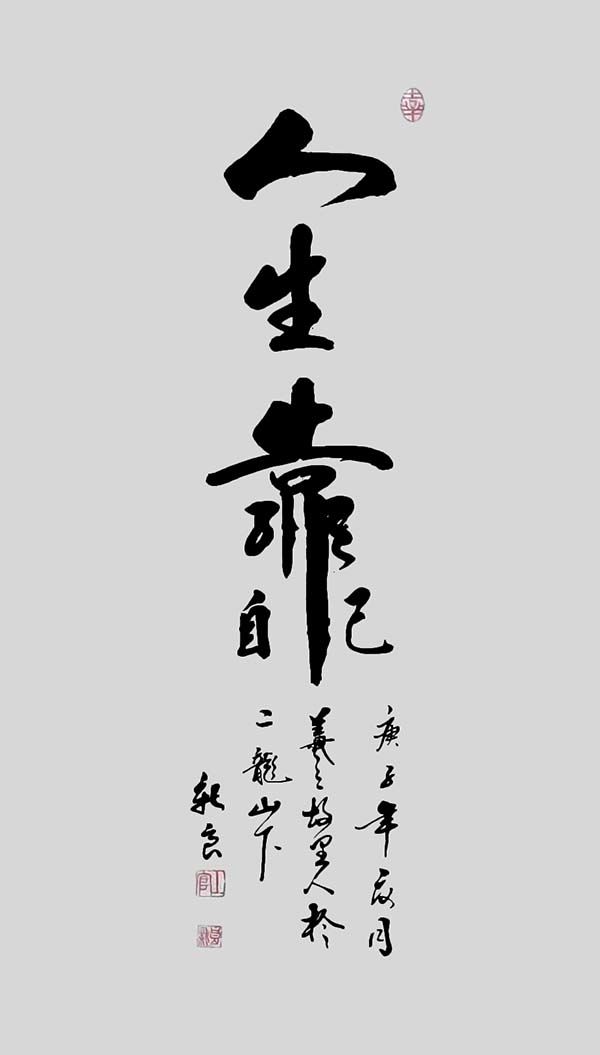 人生靠自己
庚子年夏月
羲之故里人於
二龍山下
良